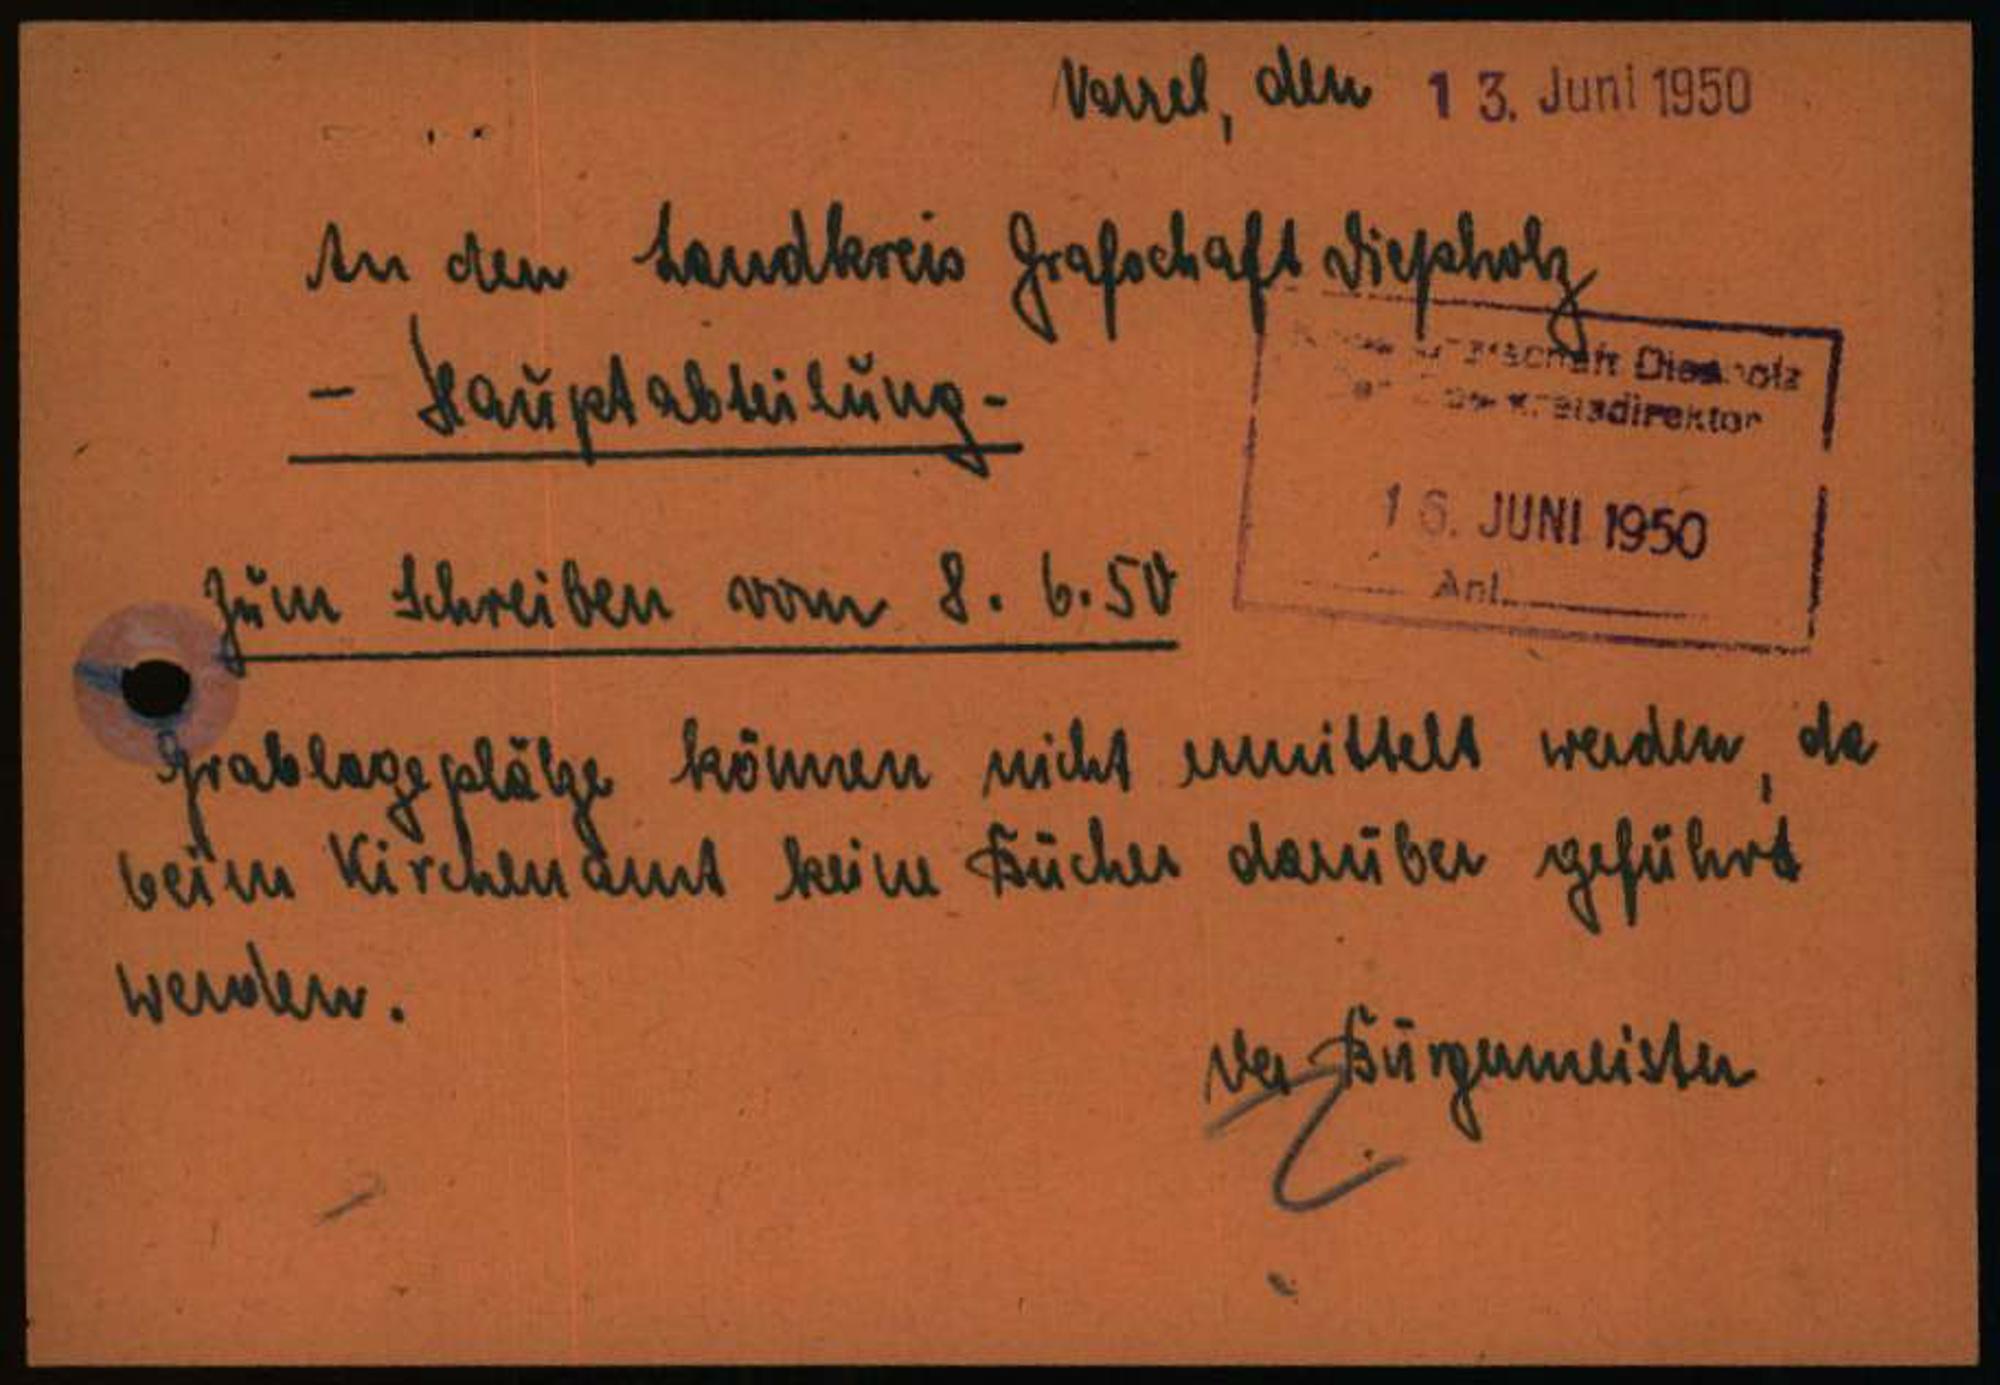 Varrel, den 13. Juni 1950
An den Landkreis Grafschaft Diepholz
- Hauptabteilung -
Grafschaft Diepholz
Der Oberkreisdirektor
16. JUNI 1950
Anl.
Zum Schreiben vom 8. 6. 50
Grablageplätze können nicht ermittelt werden, da
beim Kirchenamt keine Bücher darüber geführt
werden.
Der Bürgermeister